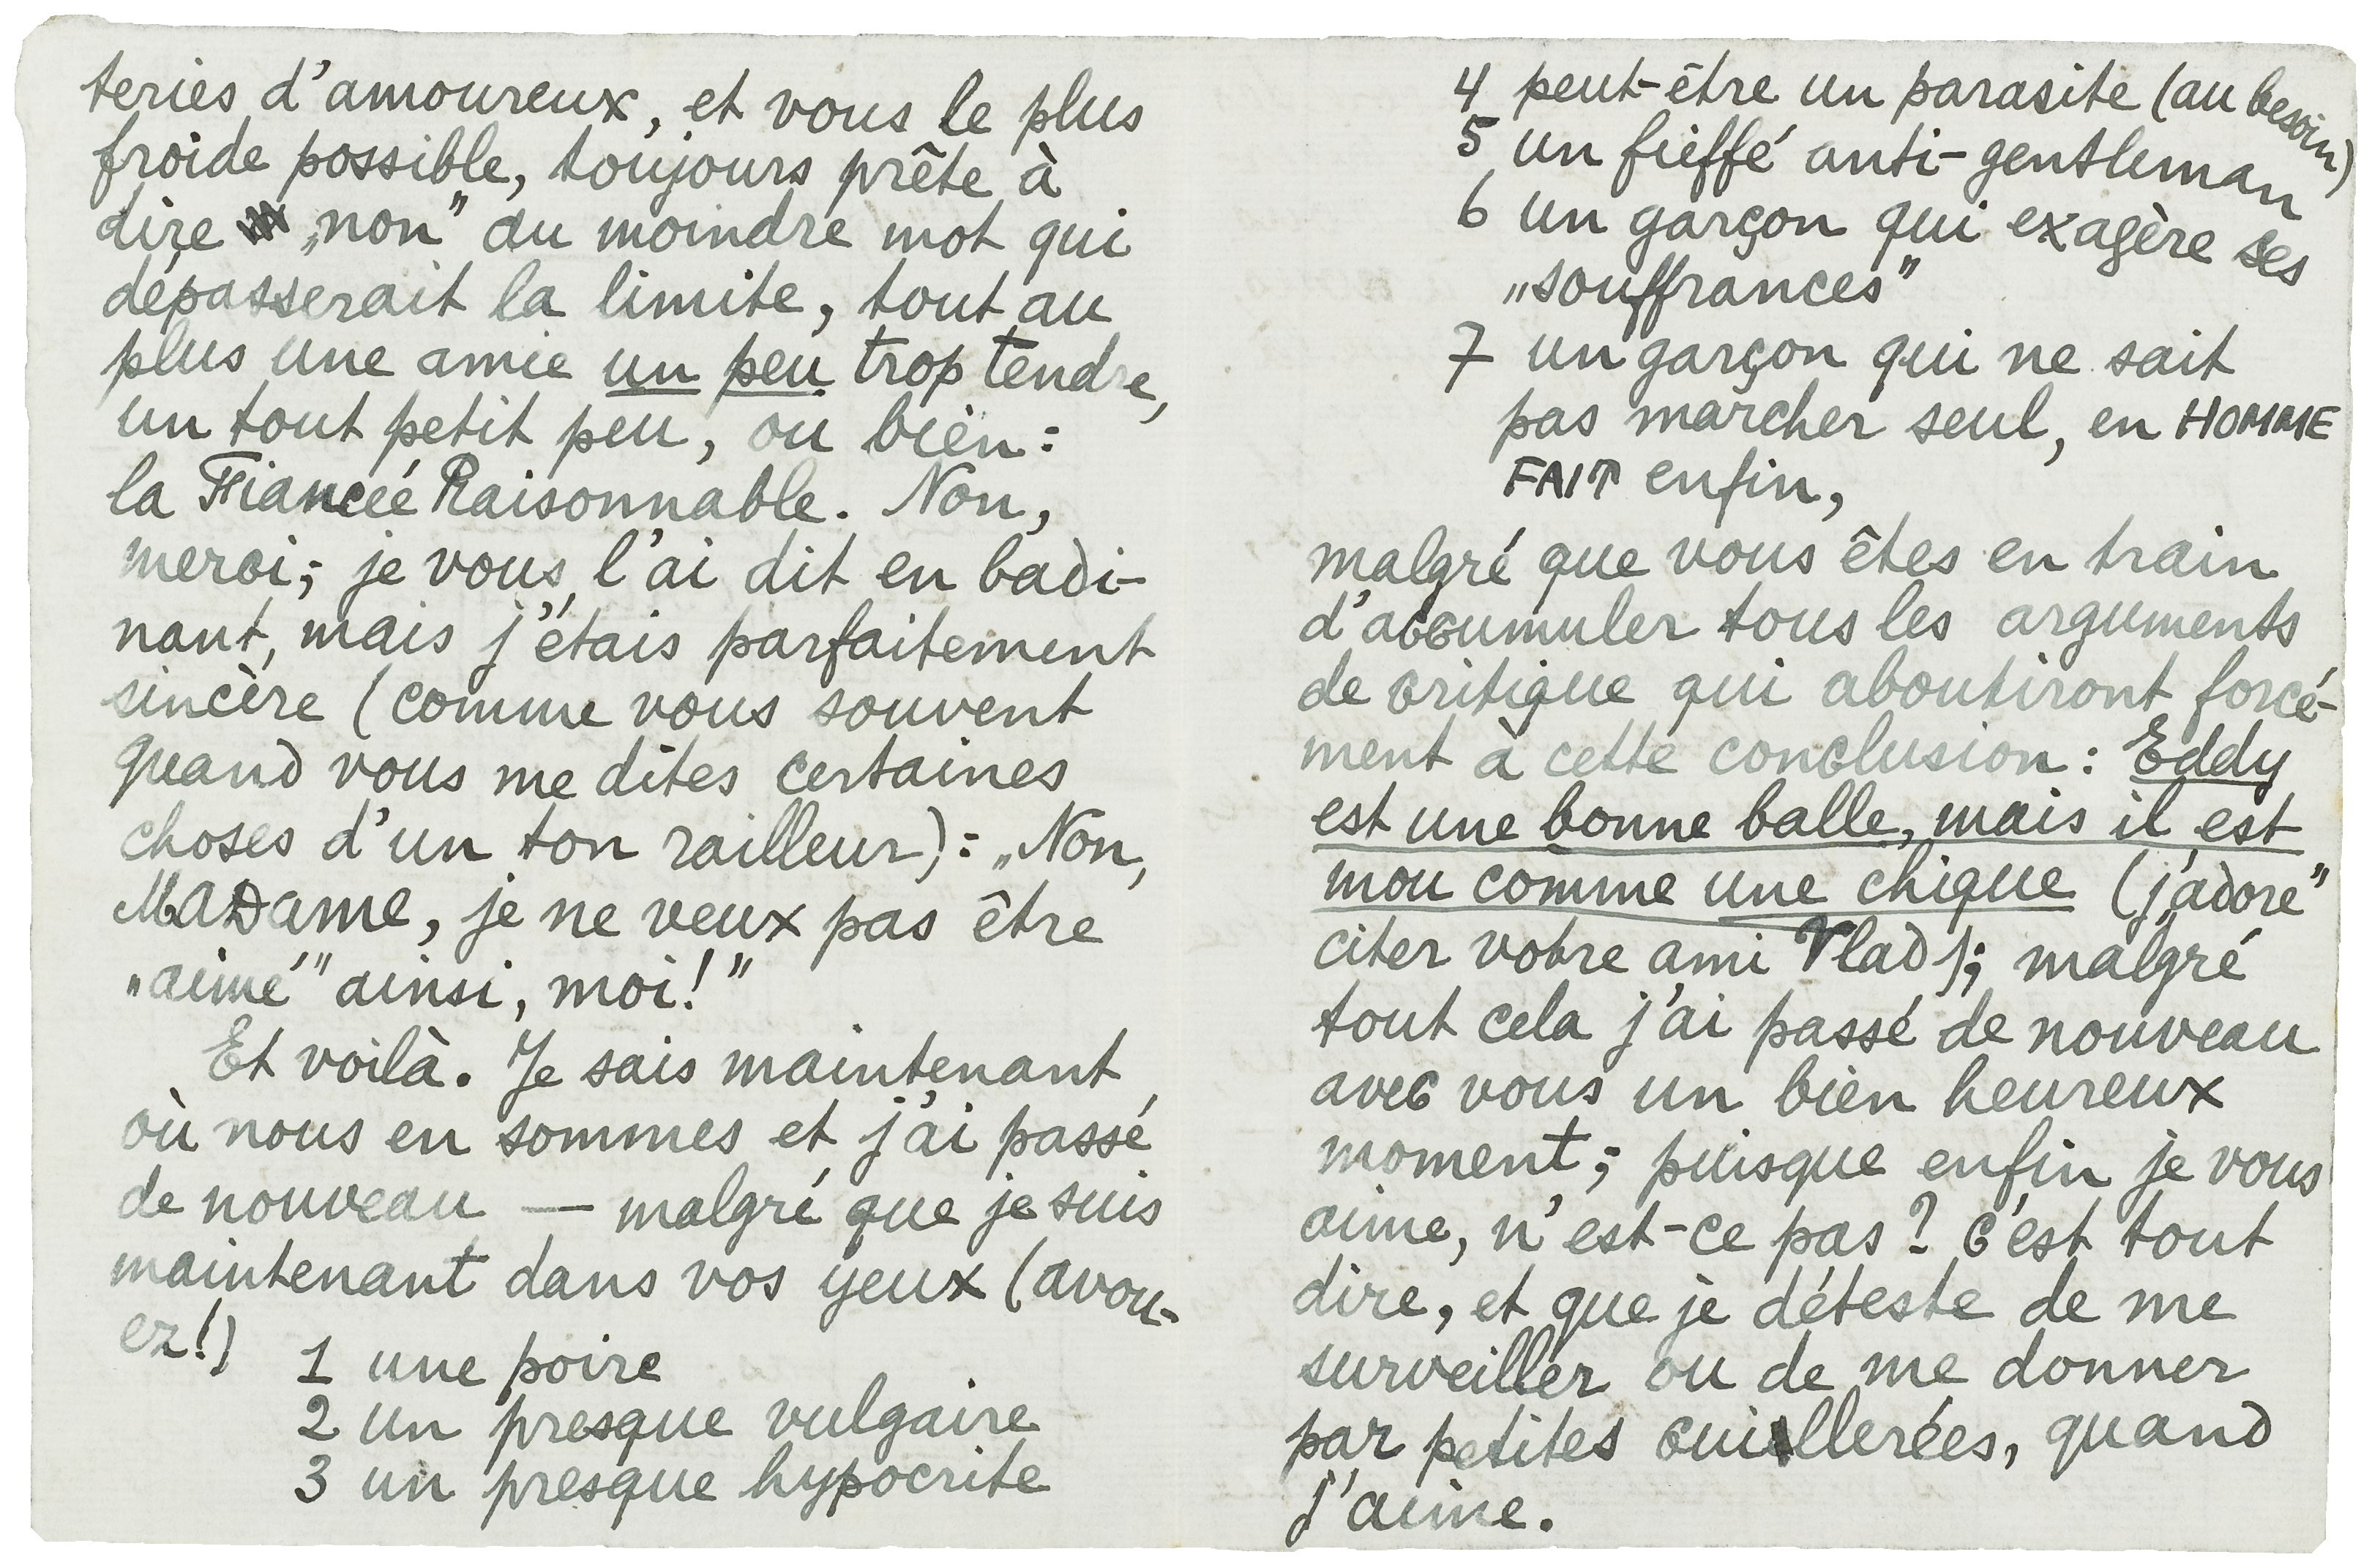 teries d'amoureux, et vous le plus
froide possible, toujours prête à
dire „non” au moindre mot qui
dépasserait la limite, tout au
plus une amie un peu trop tendre,
un tout petit peu, ou bien:
la Fiancée Raisonnable. Non,
merci; je vous l'ai dit en badi-
nant, mais j'étais parfaitement
sincère (comme vous souvent
quand vous me dites certaines
choses d'un ton railleur): „Non,
Madame, je ne veux pas être
„aimé” ainsi, moi!”
Et voilà. Je sais maintenant
où nous en sommes et j'ai passé
de nouveau — malgré que je suis
maintenant dans vos yeux (avou-
ez!)
1 une poire
2 un presque vulgaire
3 un presque hypocrite
4 peut-être un parasite (au besoin)
5 un fieffé anti-gentleman
6 un garçon qui exagère ses
„souffrances”
7 un garçon qui ne sait
pas marcher seul, en HOMME
FAIT enfin,
malgré que vous êtes en train
d'accumuler tous les arguments
de critique qui aboutiront forcé-
ment à cette conclusion: Eddy
est une bonne balle, mais il est
mou comme une chique (j'„adore”
citer votre ami Vlad); malgré
tout cela j'ai passé de nouveau
avec vous un bien heureux
moment; puisque enfin je vous
aime, n'est-ce pas? c'est tout
dire, et que je déteste de me
surveiller ou de me donner
par petites cuillerées, quand
j'aime.